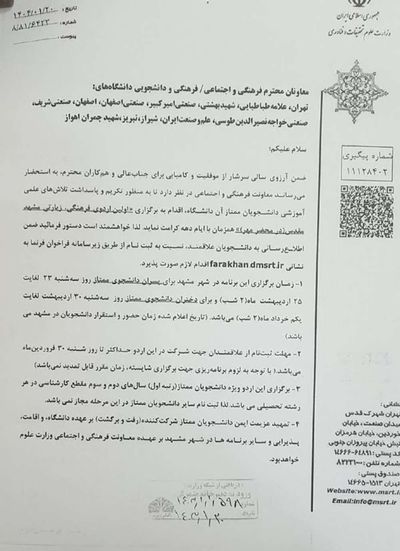 جمهوری اسلامی ایران
وزارت علوم تحقیقات و فناوری
تاریخ: ۱۴۰۴/۰۱/۲۰
شماره: ۸/۸۱/۶۴۲۲
پیوست
شماره پیگیری
۱۱۱۲۸۴۰۲
معاونان محترم فرهنگی و اجتماعی/ فرهنگی و دانشجویی دانشگاه‌های:
تهران، علامه طباطبایی، شهیدبهشتی، صنعتی امیرکبیر، صنعتی اصفهان، اصفهان، صنعتی شریف،
صنعتی خواجه نصیرالدین طوسی، علم و صنعت ایران، شیراز، تبریز، شهید چمران اهواز
سلام علیکم؛
ضمن آرزوی سالی سرشار از موفقیت و کامیابی برای جناب‌عالی و همکاران محترم، به استحضار
می‌رساند، معاونت فرهنگی و اجتماعی در نظر دارد تا به منظور تکریم و پاسداشت تلاش‌های علمی
آموزشی دانشجویان ممتاز آن دانشگاه، اقدام به برگزاری «اولین اردوی فرهنگی، زیارتی مشهد
مقدس(در محضر مهر)» همزمان با ایام دهه کرامت نماید. لذا خواهشمند است دستور فرمائید ضمن
اطلاع‌رسانی به دانشجویان علاقمند، نسبت به ثبت نام از طریق زیرسامانه فراخوان فرنما به
نشانی farakhan.dmsrt.ir اقدام لازم صورت پذیرد.
۱- زمان برگزاری این برنامه در شهر مشهد برای پسران دانشجوی ممتاز روز سه‌شنبه ۲۳ لغایت
۲۵ اردیبهشت ماه (۲ شب) و برای دختران دانشجوی ممتاز روز سه‌شنبه ۳۰ اردیبهشت لغایت
یکم خرداد ماه(۲ شب) می‌باشد. (تاریخ اعلام شده زمان حضور و استقرار دانشجویان در مشهد می
باشد)
۲- مهلت ثبت‌نام از علاقمندان جهت شرکت در این اردو حداکثر تا روز شنبه ۳۰ فروردین‌ماه
می‌باشد.( با توجه به لزوم برنامه‌ریزی جهت برگزاری شایسته، زمان مقرر قابل تمدید نمی‌باشد)
۳- برگزاری این اردو ویژه دانشجویان ممتاز(رتبه اول) سال‌های دوم و سوم مقطع کارشناسی در هر
رشته تحصیلی می باشد لذا ثبت نام سایر دانشجویان ممتاز در این مرحله مجاز نمی باشد.
۴- تمهید عزیمت ایمن دانشجویان ممتاز شرکت‌کننده(رفت و برگشت) بر عهده دانشگاه، و اقامت،
پذیرایی و سایر برنامه ها در شهر مشهد بر عهده معاونت فرهنگی و اجتماعی وزارت علوم
خواهدبود.
نشانی:
تهران شهرک قدس
میدان صنعت، خیابان
خوردین، خیابان هرمزان
نبش خیابان پیروزان جنوبی
کد پستی: ۱۴۶۶۶-۶۴۸۹۱
شماره تلفن: ۸۲۲۳۱۰۰۰
صندوق پستی:
۱۴۶۶۵-۱۵۱۳ تهران
Website:www.msrt.ir
Email:info@msrt.ir